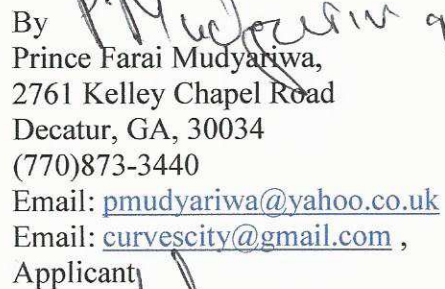 By
Prince Farai Mudyariwa,
2761 Kelley Chapel Road
Decatur, GA, 30034
(770)873-3440
Email: pmudyariwa@yahoo.co.uk
Email: curvescity@gmail.com ,
Applicant